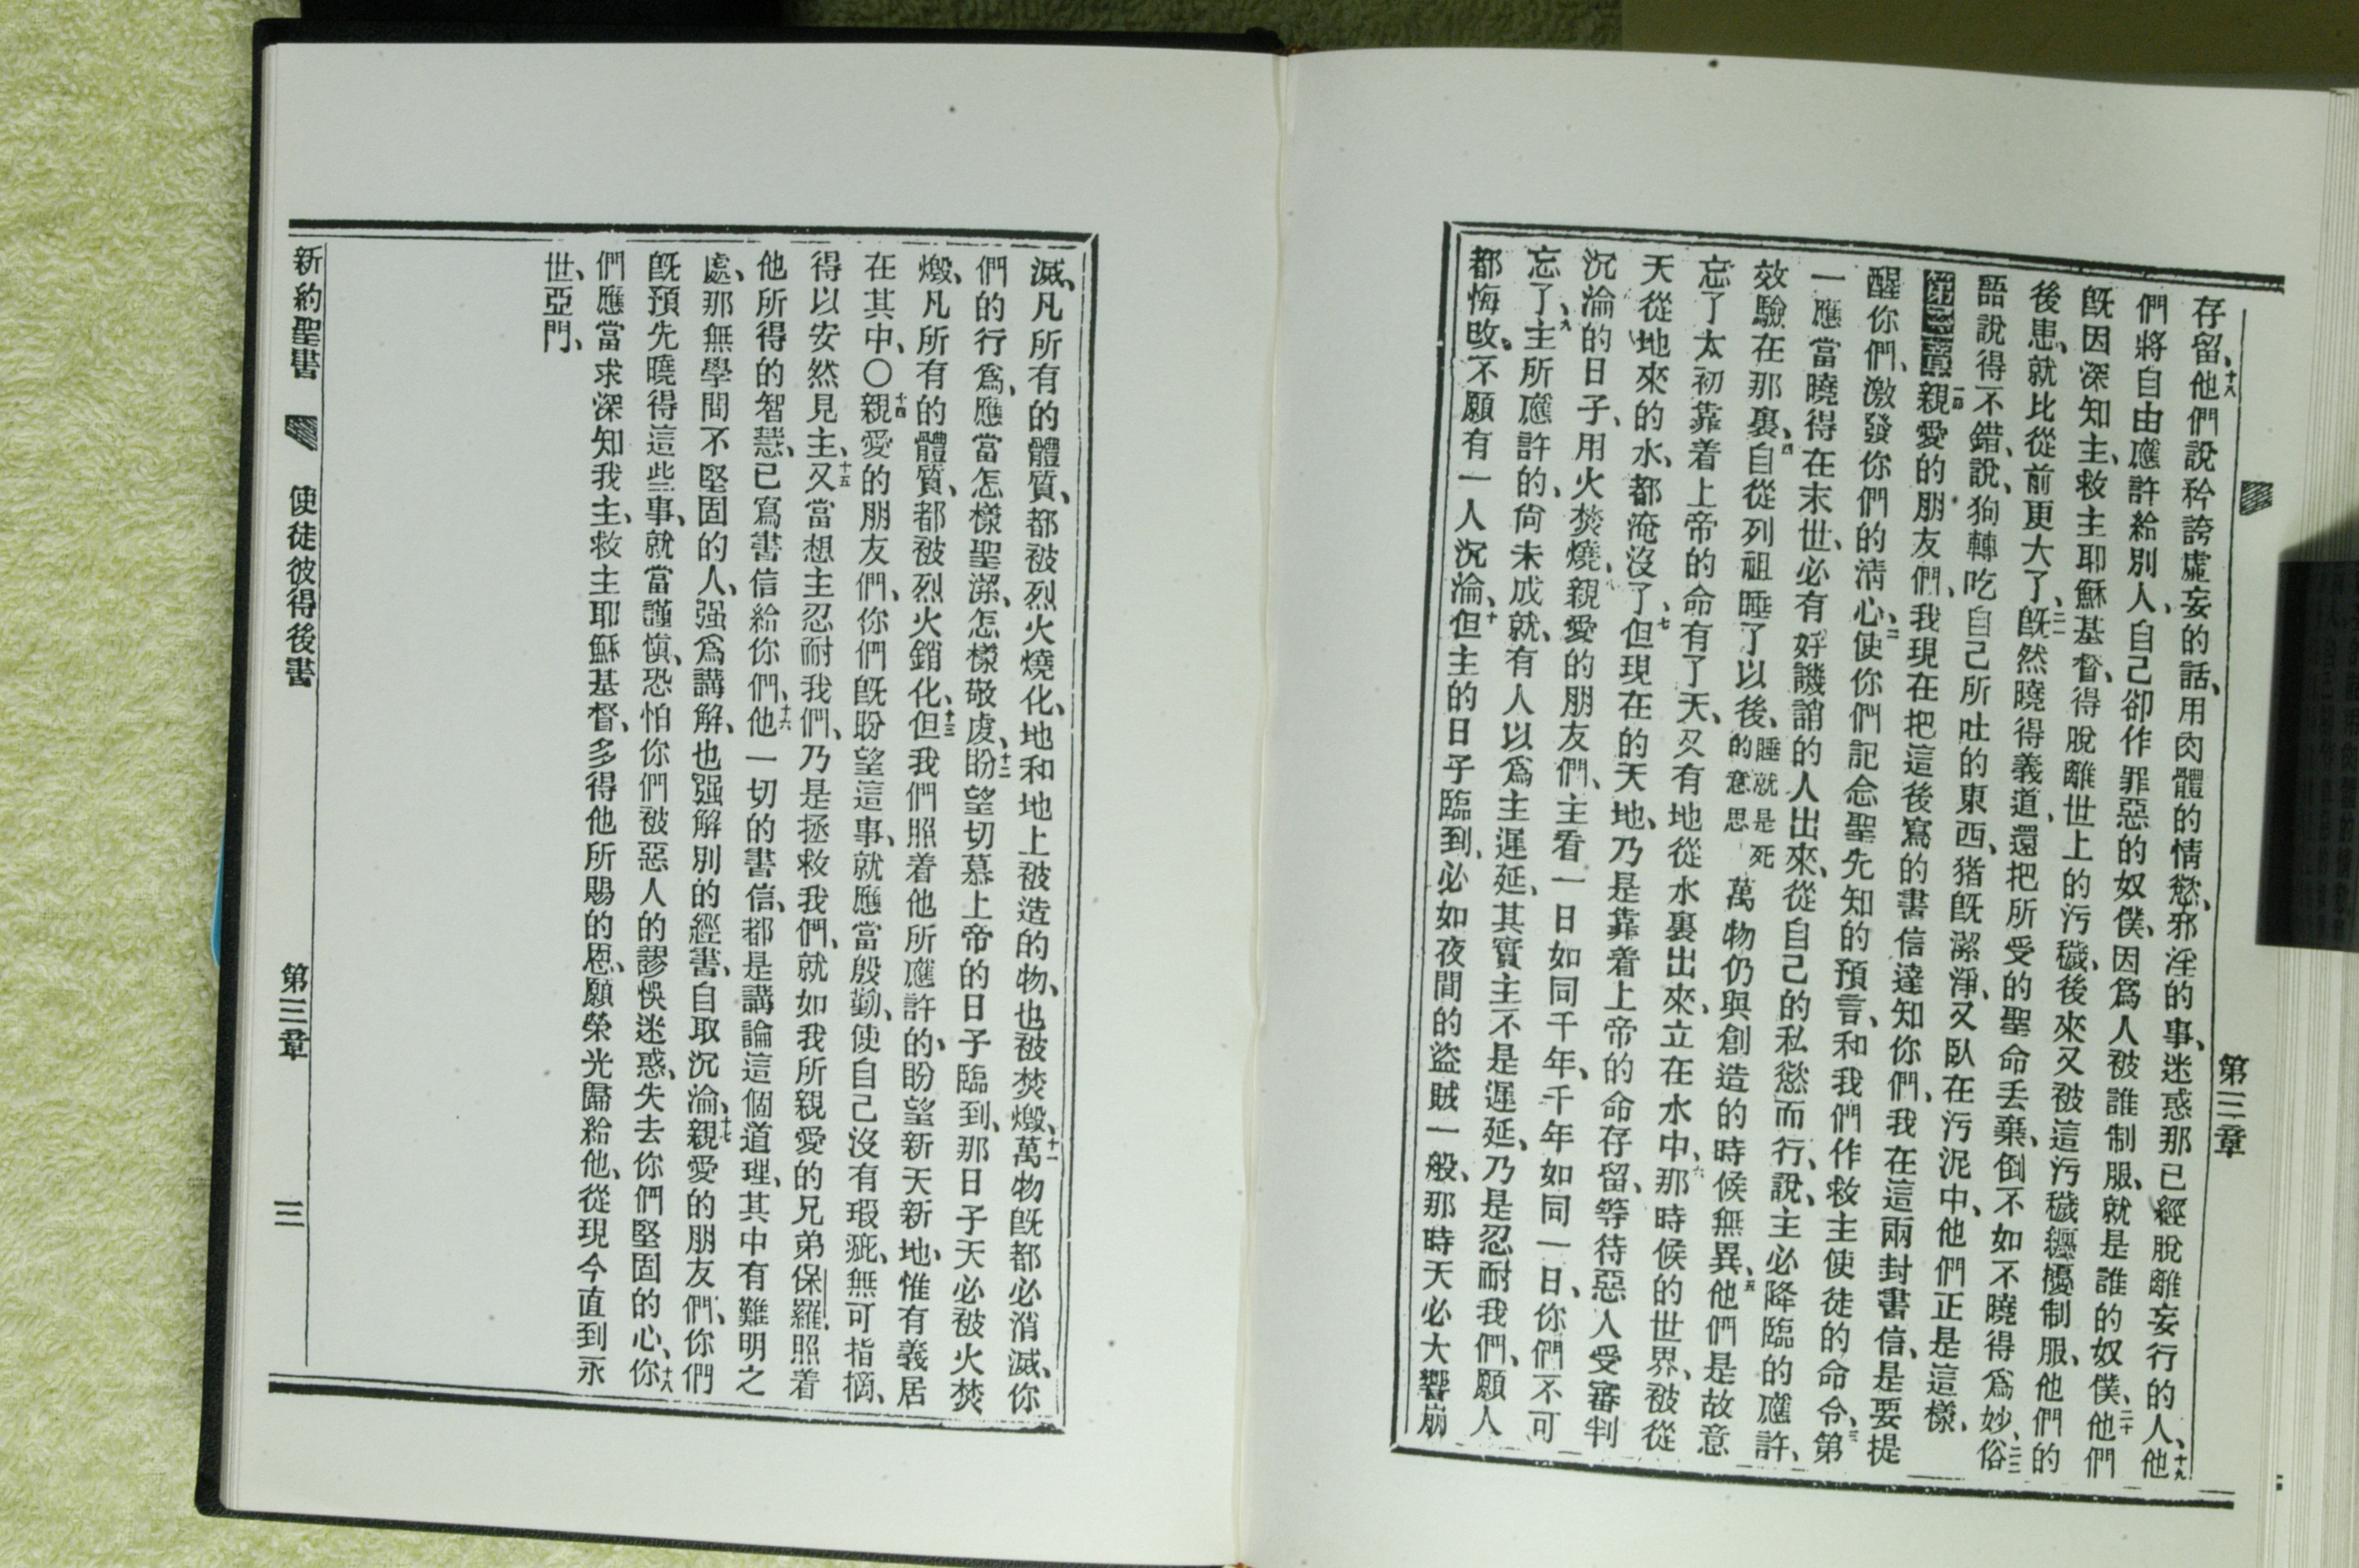 第三章
存留、十八他們說矜誇虛妄的話、用肉體的情慾、邪淫的事、迷惑那已經脫離妄行的人、十九他
們將自由應許給別人、自己卻作罪惡的奴僕、因爲人被誰制服、就是誰的奴僕、二十他們
旣因深知主、救主耶穌基督、得脫離世上的污穢、後來又被這污穢纏擾制服、他們的
後患、就比從前更大了、二一旣然曉得義道、還把所受的聖命丟棄、倒不如不曉得爲妙、二二俗
語說得不錯、說、狗轉吃自己所吐的東西、猪旣潔淨、又臥在污泥中、他們正是這樣、
第三章一節親愛的朋友們、我現在把這後寫的書信達知你們、我在這兩封書信、是要提
醒你們、激發你們的清心、二使你們記念聖先知的預言、和我們作救主使徒的命令、三第
一應當曉得在末世、必有好譏誚的人出來、從自己的私慾而行、說、主必降臨的應許、
效驗在那裏、四自從列祖睡了以後、睡就是死的意思萬物仍與創造的時候無異、五他們是故意
忘了太初靠着上帝的命有了天、又有地從水裏出來、立在水中、六那時候的世界、被從
天從地來的水、都淹沒了、七但現在的天地、乃是靠着上帝的命存留、等待惡人受審判
沉淪的日子、用火焚燒、親愛的朋友們、主看一日如同千年、千年如同一日、你們不可
忘了、九主所應許的、尙未成就、有人以爲主遲延、其實主不是遲延、乃是忍耐我們、願人
都悔改、不願有一人沉淪、十但主的日子臨到、必如夜間的盜賊一般、那時天必大響崩
滅、凡所有的體質、都被烈火燒化、地和地上被造的物、也被焚燬、十一萬物旣都必消滅、你
們的行爲、應當怎樣聖潔、怎樣敬虔、十二盼望切慕上帝的日子臨到、那日子天必被火焚
燬、凡所有的體質、都被烈火銷化、十三但我們照着他所應許的、盼望新天新地、惟有義居
在其中、〇十四親愛的朋友們、你們旣盼望這事、就應當殷勤、使自己沒有瑕疵、無可指摘、
得以安然見主、十五又當想主忍耐我們、乃是拯救我們、就如我所親愛的兄弟保羅、照着
他所得的智慧、已寫書信給你們、十六他一切的書信、都是講論這個道理、其中有難明之
處、那無學問不堅固的人、强爲講解、也强解別的經書、自取沉淪、十七親愛的朋友們、你們
旣預先曉得這些事、就當謹愼、恐怕你們被惡人的謬悞迷惑、失去你們堅固的心、十八你
們應當求深知我主、救主耶穌基督、多得他所賜的恩、願榮光歸給他、從現今直到永
世、亞門、
新約聖書 使徒彼得後書 第三章 三